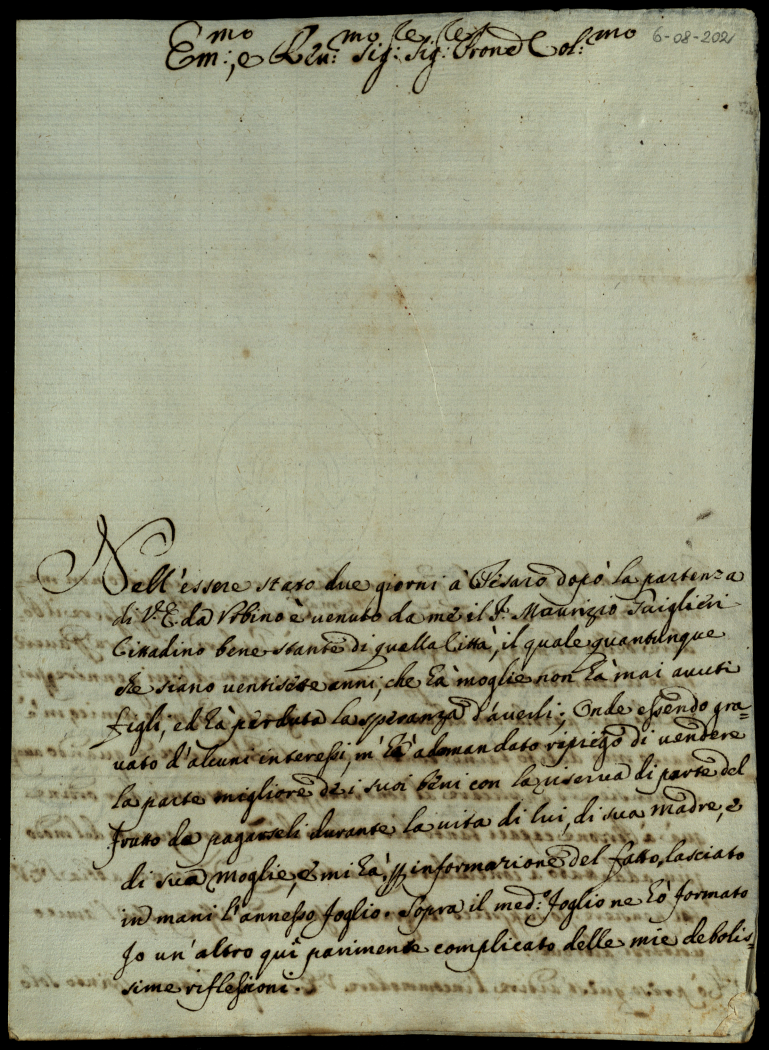 6-08-202
Em:mo, e Rev:mo Sig:re Sig:re Prone Col:mo
Nell'essere stato due giorni à Pesaro dopò la partenza
di V.E. da Vrbino è venuto da me il Sr. Maurizio
Cittadino bene stante di quella Città, il quale quantunque
che siano ventisette anni, che hà moglie non hà mai avuti
figli, ed hà perduta la speranza d'averli; Onde essendo gra=
vato d'alcuni interessi, m'hà adomandato ripiego di vendere
la parte migliore de i suoi beni con la riserva di parte del
frutto da pagarseli durante la vita di lui, di sua Madre, e
di sua Moglie, e mi hà, p informazione del fatto, lasciato
in mani l'annesso foglio. Sopra il med:o foglio ne hò formato
Io un'altro quì parimente complicato delle mie debolis=
sime riflessioni.